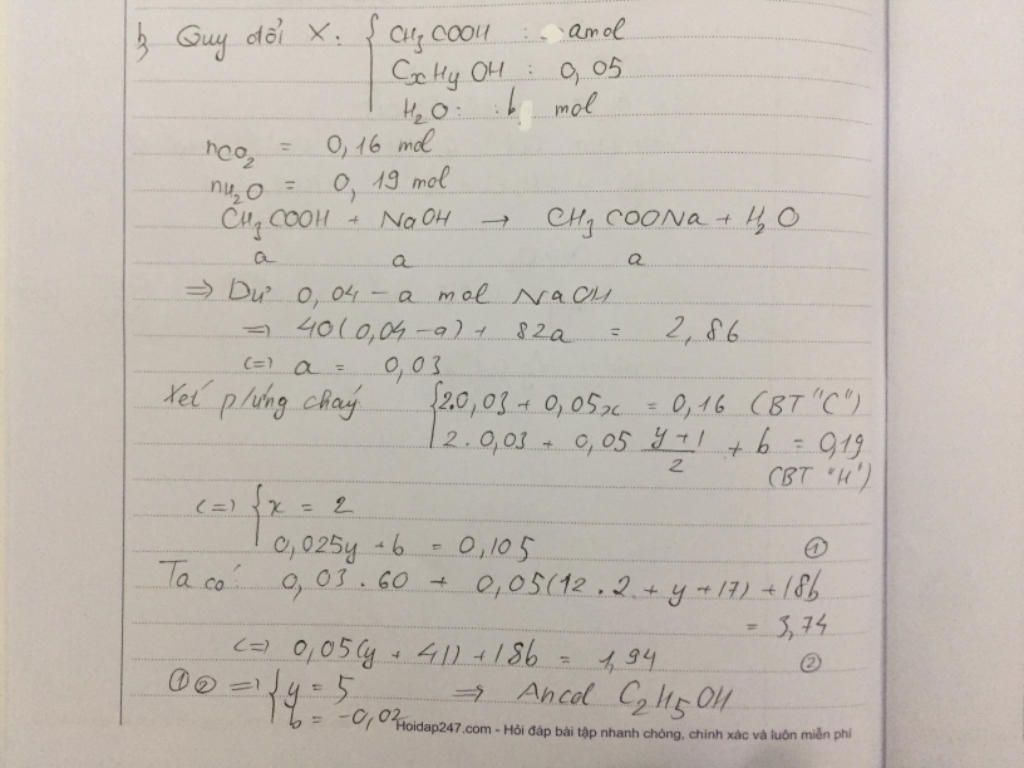 b, Quy đổi X: { CH₃COOH : a mol
CxHyOH : 0,05
H₂O : b mol
nCO₂ = 0,16 mol
nH₂O = 0,19 mol
CH₃COOH + NaOH → CH₃COONa + H₂O
a a a
⇒ Dư 0,04 - a mol NaOH
⇒ 40(0,04 - a) + 82a = 2,86
(=) a = 0,03
Xét p/ứng cháy { 2.0,03 + 0,05x = 0,16 (BT "C")
2.0,03 + 0,05 (y+1)/2 + b = 0,19
(BT "H")
(=) { x = 2
0,025y + b = 0,105 ①
Ta có: 0,03.60 + 0,05(12.2 + y + 17) + 18b
= 3,74
(=) 0,05(y + 41) + 18b = 1,94 ②
①② ⇒ { y = 5 ⇒ Ancol C₂H₅OH
b = -0,02
Hoidap247.com - Hỏi đáp bài tập nhanh chóng, chính xác và luôn miễn phí